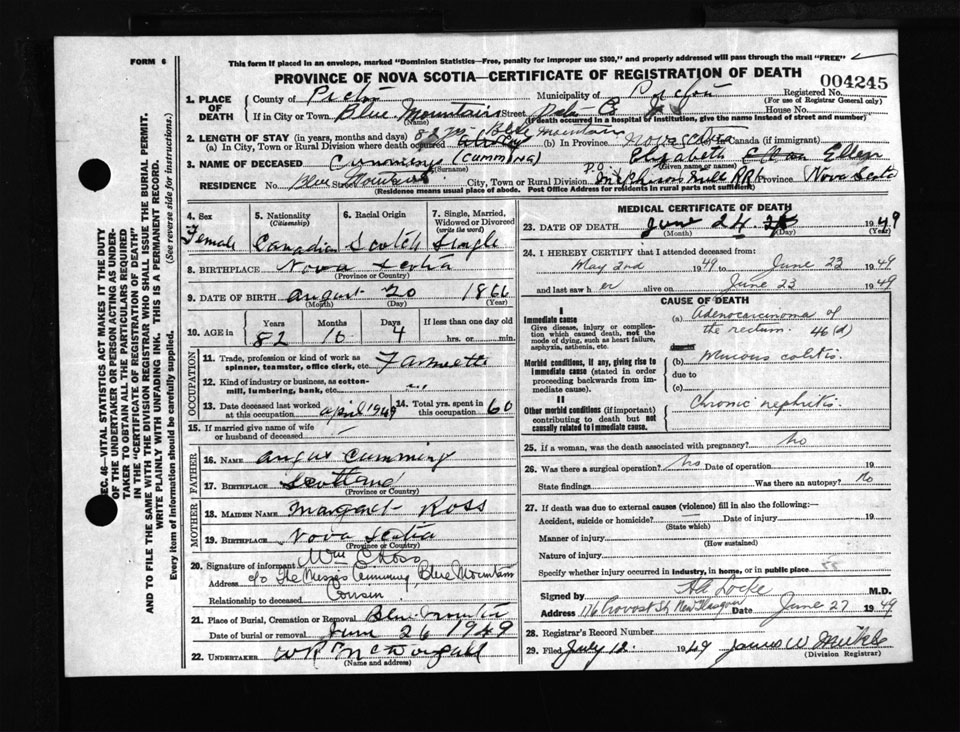 FORM 6
This form if placed in an envelope, marked "Dominion Statistics—Free, penalty for improper use $300," and properly addressed will pass through the mail "FREE"
PROVINCE OF NOVA SCOTIA—CERTIFICATE OF REGISTRATION OF DEATH
004245
1. PLACE OF DEATH
County of Pictou Municipality of Pictou Registered No.
(For use of Registrar General only)
If in City or Town Blue Mountain Street House No.
(Name) (If death occurred in a hospital of institution, give the name instead of street and number)
2. LENGTH OF STAY (in years, months and days)
(a) In City, Town or Rural Division where death occurred 82 yrs Blue Mountain (b) In Province Nova Scotia (c) In Canada (if immigrant)
3. NAME OF DECEASED Cummings (Cumming) Elizabeth Ellen
(Surname) (Given name or names)
RESIDENCE No. Blue Street Mountain City, Town or Rural Division P.O. RR Province Nova Scotia
(Residence means usual place of abode. Post Office Address for residents in rural parts not sufficient)
SEC. 46—VITAL STATISTICS ACT MAKES IT THE DUTY
OF THE UNDERTAKER OR PERSON ACTING AS UNDER-
TAKER TO OBTAIN ALL THE PARTICULARS REQUIRED
IN THE "CERTIFICATE OF REGISTRATION OF DEATH"
AND TO FILE THE SAME WITH THE DIVISION REGISTRAR WHO SHALL ISSUE THE BURIAL PERMIT.
WRITE PLAINLY WITH UNFADING INK. THIS IS A PERMANENT RECORD.
Every item of information should be carefully supplied. (See reverse side for instructions.)
4. Sex
Female
5. Nationality
(Citizenship)
Canadian
6. Racial Origin
Scotch
7. Single, Married,
Widowed or Divorced
(write the word)
Single
8. BIRTHPLACE Nova Scotia
(Province or Country)
9. DATE OF BIRTH August 20 1866
(Month) (Day) (Year)
10. AGE in Years Months Days If less than one day old
82 10 4 hrs. or min.
OCCUPATION
11. Trade, profession or kind of work as
spinner, teamster, office clerk, etc.
12. Kind of industry or business, as cotton-
mill, lumbering, bank, etc.
13. Date deceased last worked
at this occupation April 1949
14. Total yrs. spent in
this occupation 60
15. If married give name of wife
or husband of deceased
FATHER
16. NAME Angus Cumming
17. BIRTHPLACE Scotland
(Province or Country)
MOTHER
18. MAIDEN NAME Margaret Ross
19. BIRTHPLACE Nova Scotia
(Province or Country)
20. Signature of informant Wm C Ross
Address c/o The Misses Cumming, Blue Mountain
Relationship to deceased Cousin
21. Place of Burial, Cremation or Removal Blue Mountain
Date of burial or removal June 26 1949
22. UNDERTAKER
(Name and address)
MEDICAL CERTIFICATE OF DEATH
23. DATE OF DEATH June 24 1949
(Month) (Day) (Year)
24. I HEREBY CERTIFY that I attended deceased from:
May 2nd 1949 to June 23 1949
and last saw h er alive on June 23 1949
CAUSE OF DEATH
I
Immediate cause
Give disease, injury or complica-
tion which caused death, not the
mode of dying, such as heart failure,
asphyxia, asthenia, etc.
(a) Adenocarcinoma of
the rectum. 46 (d)
Morbid conditions, if any, giving rise to
immediate cause (stated in order
proceeding backwards from im-
mediate cause).
(b) Mucous colitis.
due to
(c)
II
Other morbid conditions (if important)
contributing to death but not
causally related to immediate cause.
Chronic nephritis
25. If a woman, was the death associated with pregnancy? no
26. Was there a surgical operation? no Date of operation 19
State findings Was there an autopsy? no
27. If death was due to external causes (violence) fill in also the following:—
Accident, suicide or homicide? Date of injury 19
(State which)
Manner of injury
(How sustained)
Nature of injury
Specify whether injury occurred in industry, in home, or in public place
Signed by Locke M.D.
Address 176 Provost St New Glasgow Date June 27 1949
28. Registrar's Record Number
29. Filed July 12. 1949 James W
(Division Registrar)